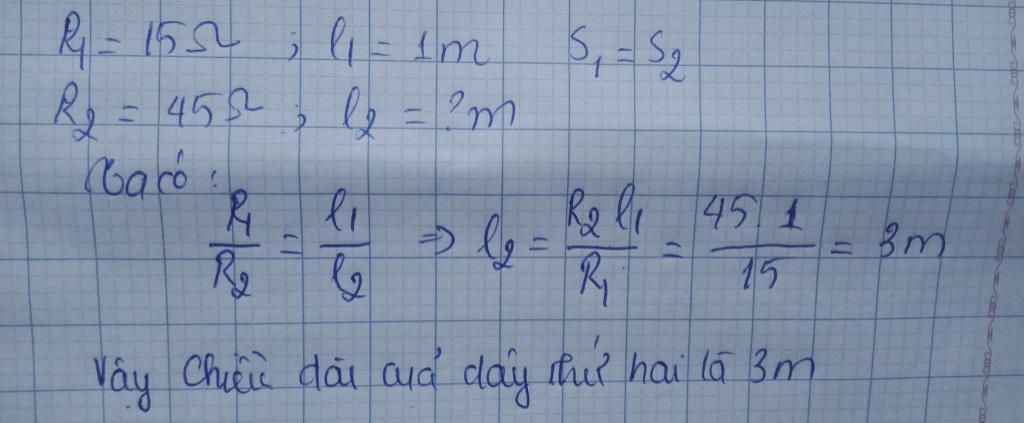 R₁ = 15Ω ; l₁ = 1m S₁ = S₂
R₂ = 45Ω ; l₂ = ?m
Ta có :
R₁/R₂ = l₁/l₂ ⇒ l₂ = R₂ l₁/R₁ = 45.1/15 = 3m
Vậy chiều dài của dây thứ hai là 3m